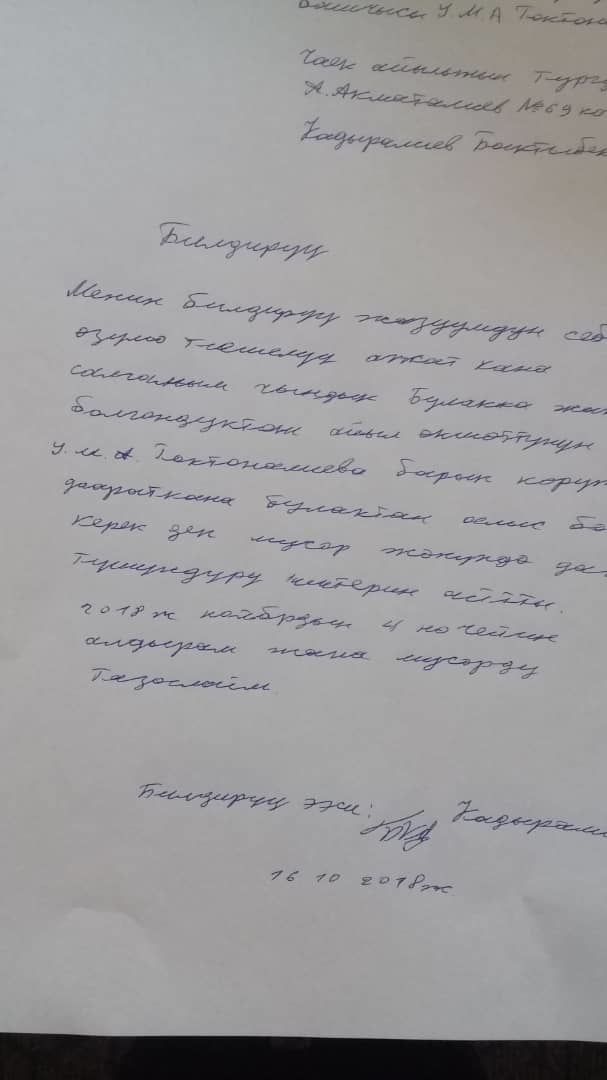 башчысы У.М.А Токтона
Чаек айылынын Тургу
А. Акматалиев №69 ко
Кадыралиев Бактыбек
Билдируу
Менин билдируу жазуумдун себ
озумо тиешелуу ажат кана
салганым чындык Булакка жак
болгондуктан айыл окмоттунун
У.М.А. Токтоналиева барып коруп
даараткана булактан алыс бо
Керек деп мусор жонундо да
тушундуру иштерин айтты.
2018ж ноябрдын 4 но чейин
алдырам жана мусорду
Тазалайм.
Билдируу ээси: Кадырали
16 10 2018ж.